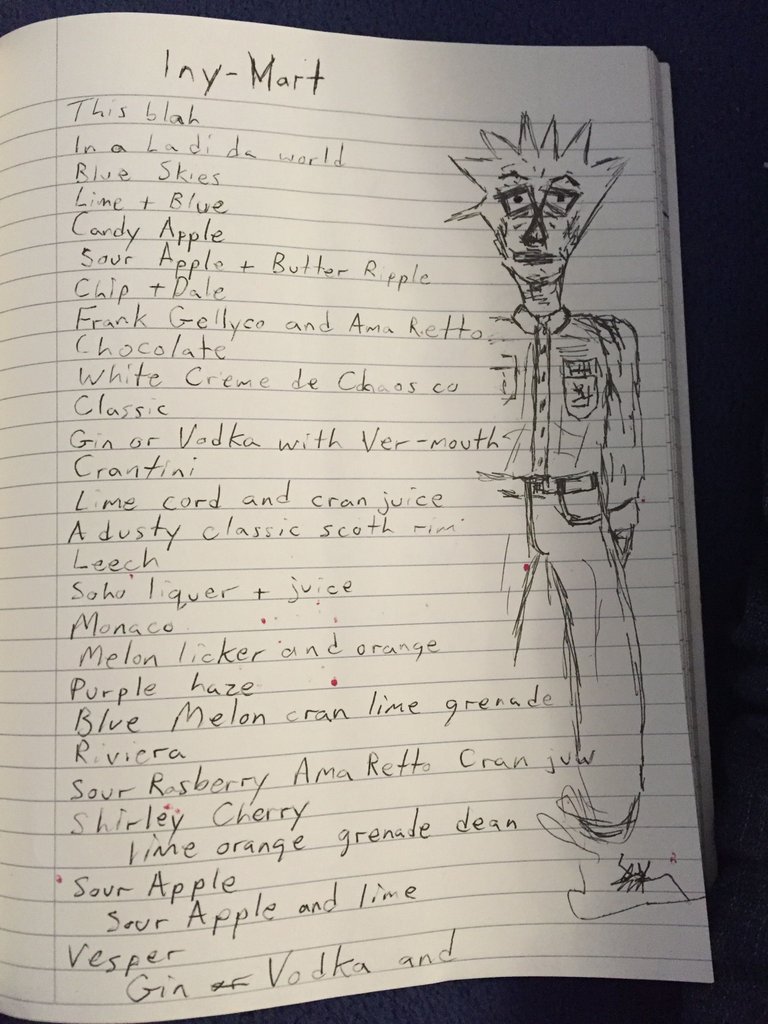 Iny-Mart
This blah
In a Ladi da world
Blue Skies
Lime + Blue
Candy Apple
Sour Apple + Butter Ripple
Chip + Dale
Frank Gellyco and Ama Retto
Chocolate
White Creme de Cchaos co
Classic
Gin or Vodka with Ver-mouth
Crantini
Lime cord and cran juice
A dusty classic scoth rim
Leech
Soho liquer + juice
Monaco
Melon licker and orange
Purple haze
Blue Melon cran lime grenade
Riviera
Sour Rasberry Ama Retto Cran juw
Shirley Cherry
lime orange grenade dean
Sour Apple
Sour Apple and lime
Vesper
Gin or Vodka and